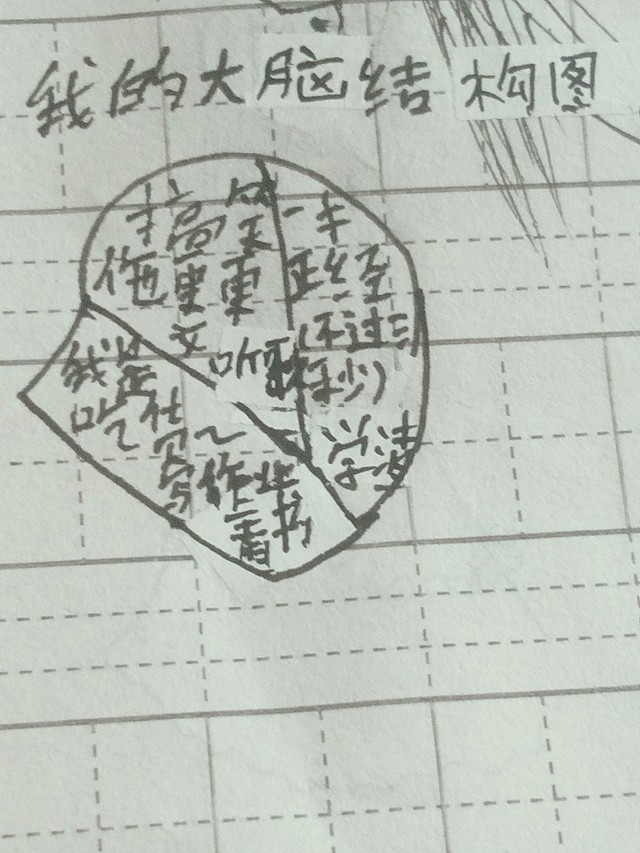 我的大脑结构图
搞笑
更更
文
听歌
一半
正经
(不过三
秒)
学渣
我是
写作业
看书